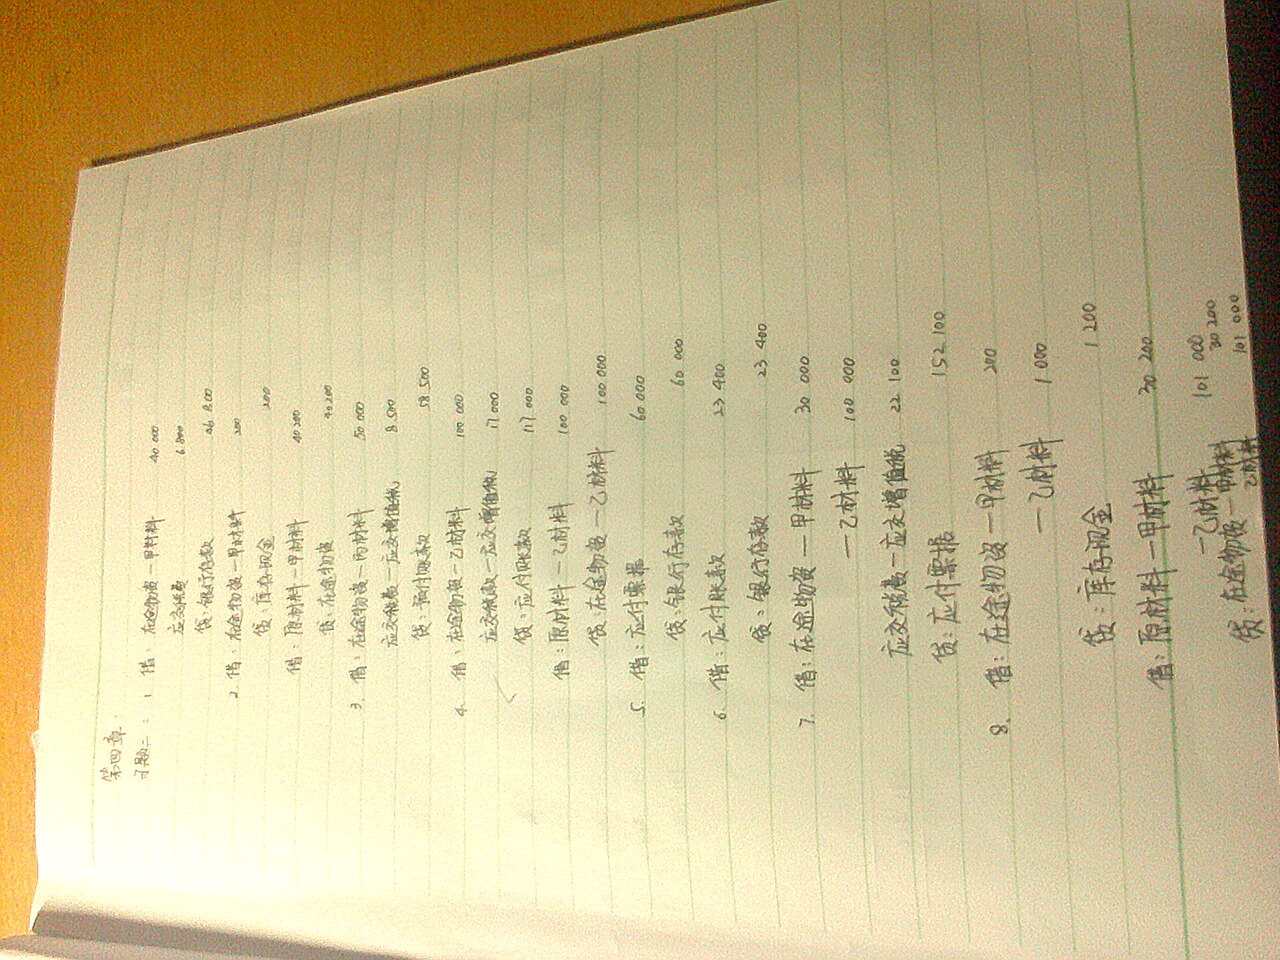 第四章:
习题二: 1. 借: 在途物资—甲材料 40 000
应交税费 6 800
贷: 银行存款 46 800
2. 借: 在途物资—甲材料 200
贷: 库存现金 200
借: 原材料—甲材料 40 200
贷: 在途物资 40 200
3. 借: 在途物资—丙材料 50 000
应交税费—应交增值税 8 500
贷: 预付账款 58 500
4. 借: 在途物资—乙材料 100 000
应交税款—应交增值税 17 000
贷: 应付账款 117 000
借: 原材料—乙材料 100 000
贷: 在途物资—乙材料 100 000
5. 借: 应付票据 60 000
贷: 银行存款 60 000
6. 借: 应付账款 23 400
贷: 银行存款 23 400
7. 借: 在途物资—甲材料 30 000
—乙材料 100 000
应交税费—应交增值税 22 100
贷: 应付票据 152 100
8. 借: 在途物资—甲材料 200
—乙材料 1 000
贷: 库存现金 1 200
借: 原材料—甲材料 30 200
—乙材料 101 000
贷: 在途物资—甲材料 30 200
乙材料 101 000